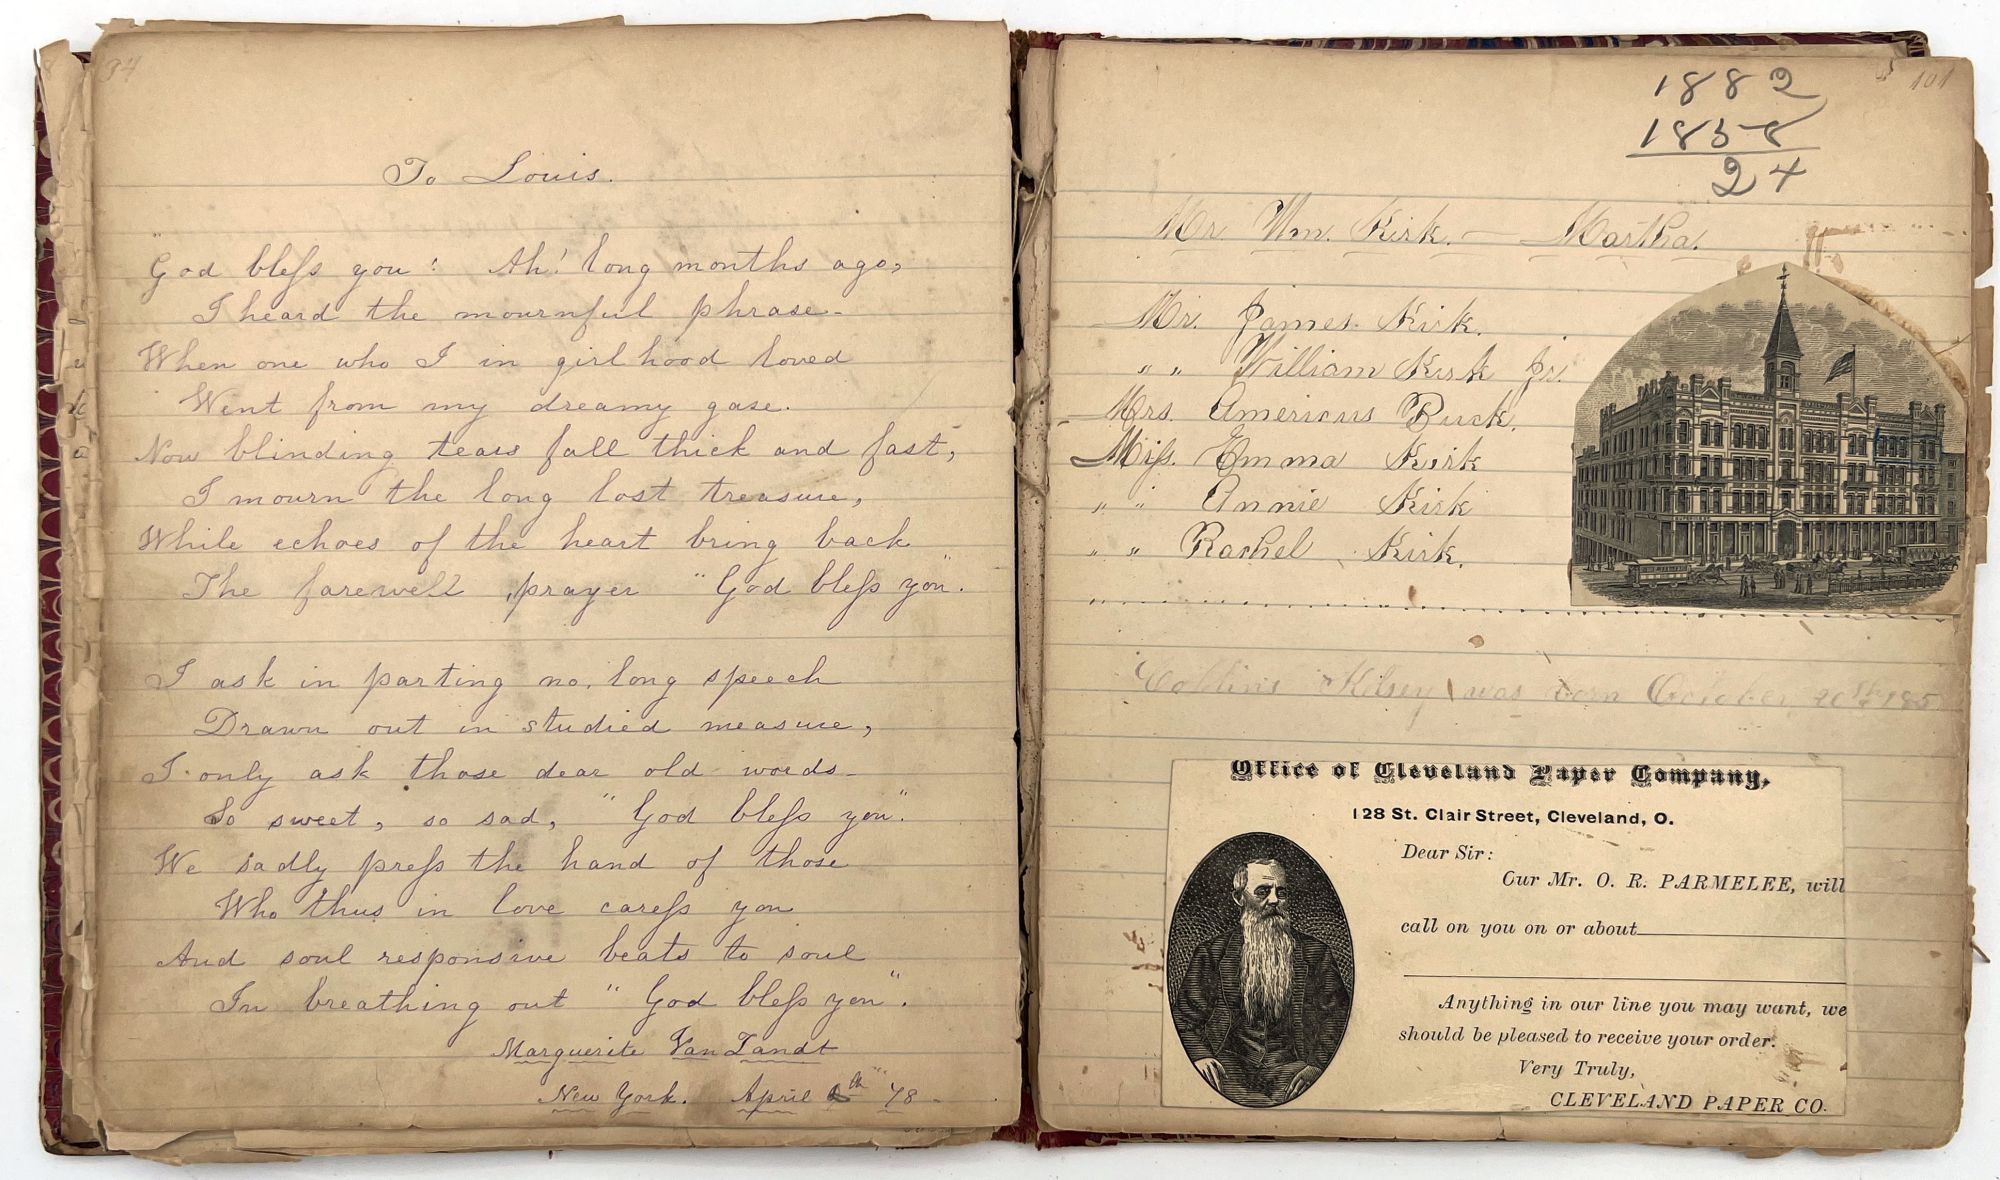 34
To Louis.
"God bless you! Ah! long months ago,
I heard the mournful phrase-
When one who I in girlhood loved
Went from my dreamy gase.
Now blinding tears fall thick and fast,
I mourn the long lost treasure,
While echoes of the heart bring back
The farewell prayer "God bless you".
I ask in parting no, long speech
Drawn out in studied measure,
I only ask those dear old words-
So sweet, so sad, "God bless you".
We sadly press the hand of those
Who thus in love caress you
And soul responsive beats to soul
In breathing out "God bless you".
Marguerite Van Zandt
New York. April th 78-
101
1882
1858
24
Mr Wm. Kirk. — Martha.
Mr. James Kirk.
" " William Kirk Jr.
Mrs. Americus Buck.
Miss. Emma Kirk
" " Annie Kirk
" " Rachel Kirk.
Kelsey was born October 20th 185
Office of Cleveland Paper Company,
128 St. Clair Street, Cleveland, O.
Dear Sir:
Our Mr. O. R. PARMELEE, will
call on you on or about
Anything in our line you may want, we
should be pleased to receive your order.
Very Truly,
CLEVELAND PAPER CO.